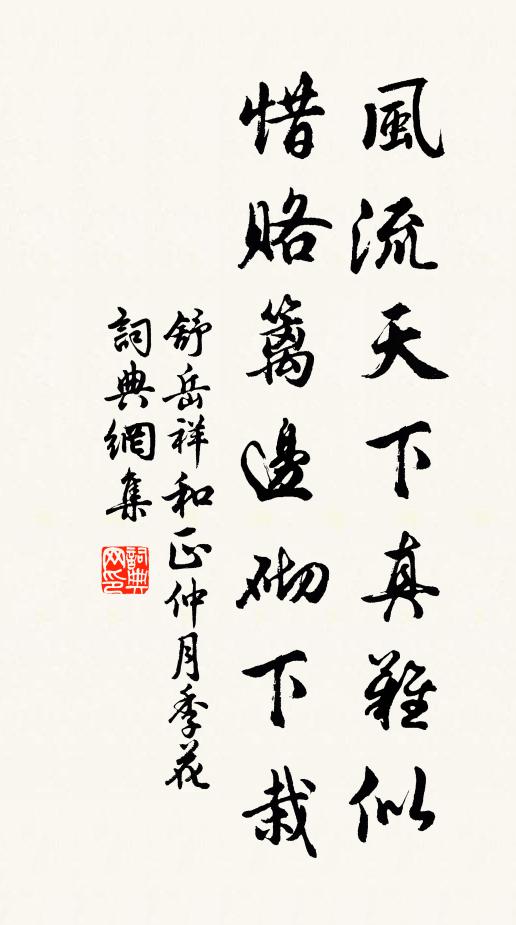 風流天下真難似
惜賂籬邊砌下栽
舒岳祥和正仲月季花
詞典網集
詞典网印